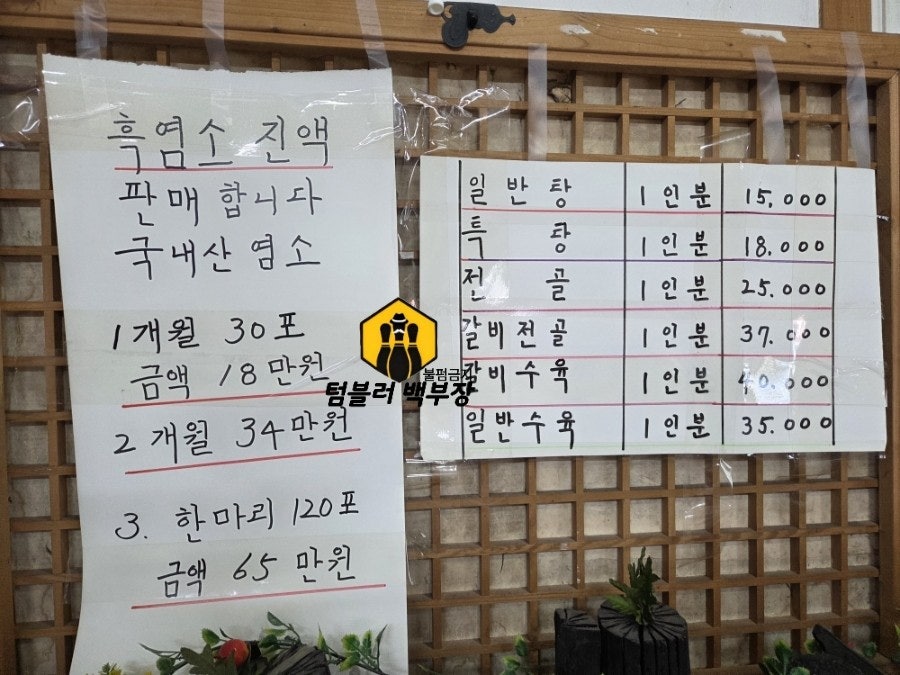 흑염소 진액
판매합니다
국내산 염소
1개월 30포
금액 18만원
2개월 34만원
3. 한마리 120포
금액 65만원
일반탕 1인분 15.000
특탕 1인분 18.000
전골 1인분 25.000
갈비전골 1인분 37.000
갈비수육 1인분 40.000
일반수육 1인분 35.000
불펌금지
텀블러 백부장